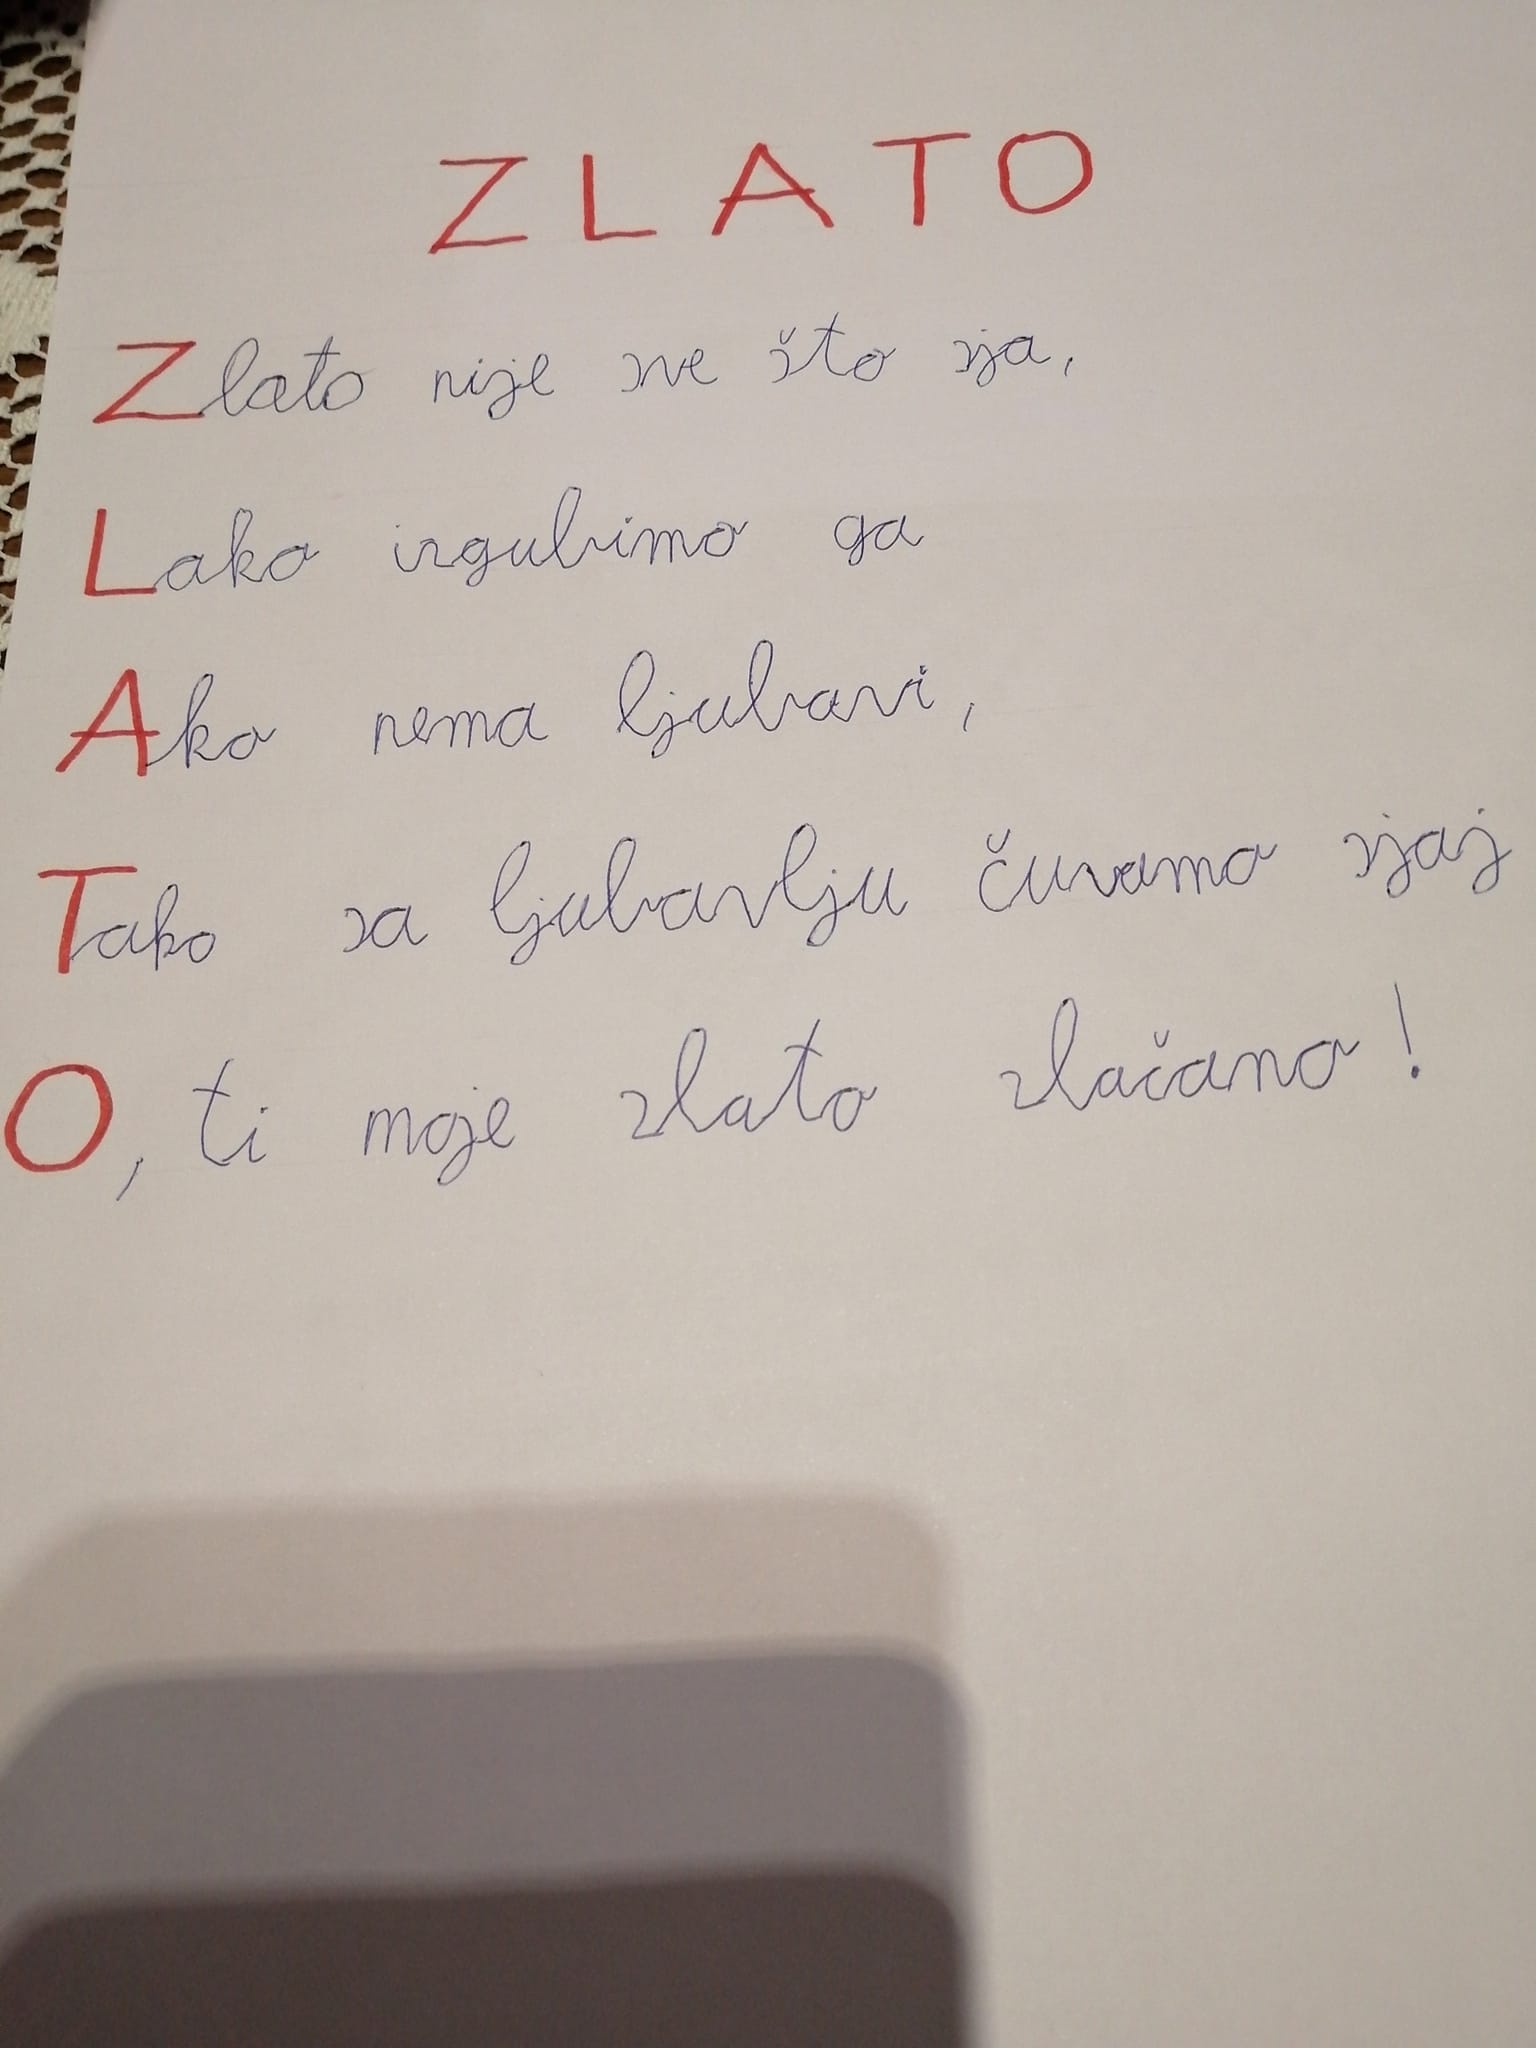 ZLATO
Zlato nije sve što sja,
Lako izgubimo ga
Ako nema ljubavi,
Tako sa ljubavlju čuvamo sjaj
O, ti moje zlato zlačano!